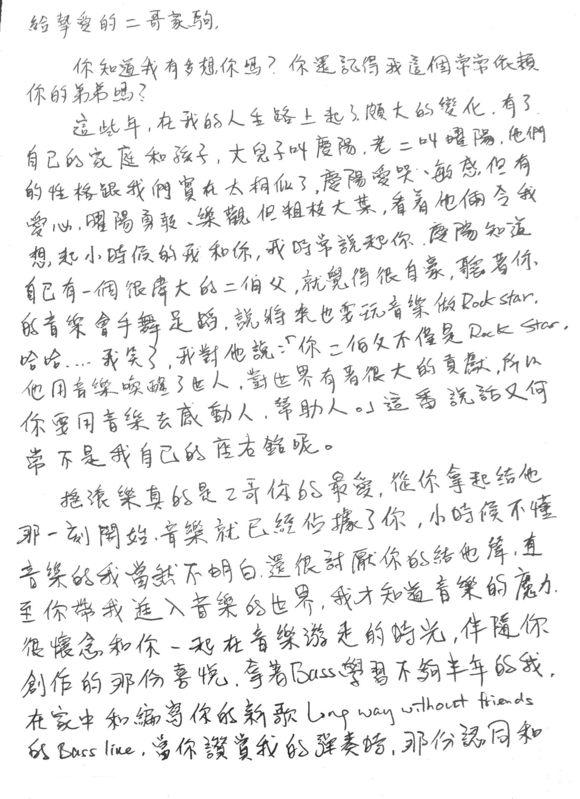 給摯愛的二哥家駒,
你知道我有多想你嗎?你還記得我這個常常依賴
你的弟弟嗎?
這些年,在我的人生路上起了頗大的變化,有了
自己的家庭和孩子,大兒子叫慶陽,老二叫曜陽,他們
的性格跟我們實在太相似了,慶陽愛哭、敏感,但有
愛心,曜陽勇敢、樂觀但粗枝大葉,看着他倆令我
想起小時候的我和你,我時常說起你,慶陽知道
自己有一個很偉大的二伯父,就覺得很自豪,聽著你
的音樂會手舞足蹈,說將來也要玩音樂做Rock star.
哈哈....我笑了,我對他說:「你二伯父不僅是Rock Star,
他用音樂喚醒了世人,對世界有著很大的貢獻,所以
你要用音樂去感動人,幫助人。」這番說話又何
常不是我自己的座右銘呢。
搖滾樂真的是二哥你的最愛,從你拿起結他
那一刻開始,音樂就已經佔據了你,小時候不懂
音樂的我當然不明白,還很討厭你的結他聲,直
至你帶我進入音樂的世界,我才知道音樂的魔力.
很懷念和你一起在音樂游走的時光,伴隨你
創作的那份喜悅,拿著Bass學習不夠半年的我,
在家中和編寫你的新歌Long way without friends
的Bass line,當你讚賞我的彈奏時,那份認同和